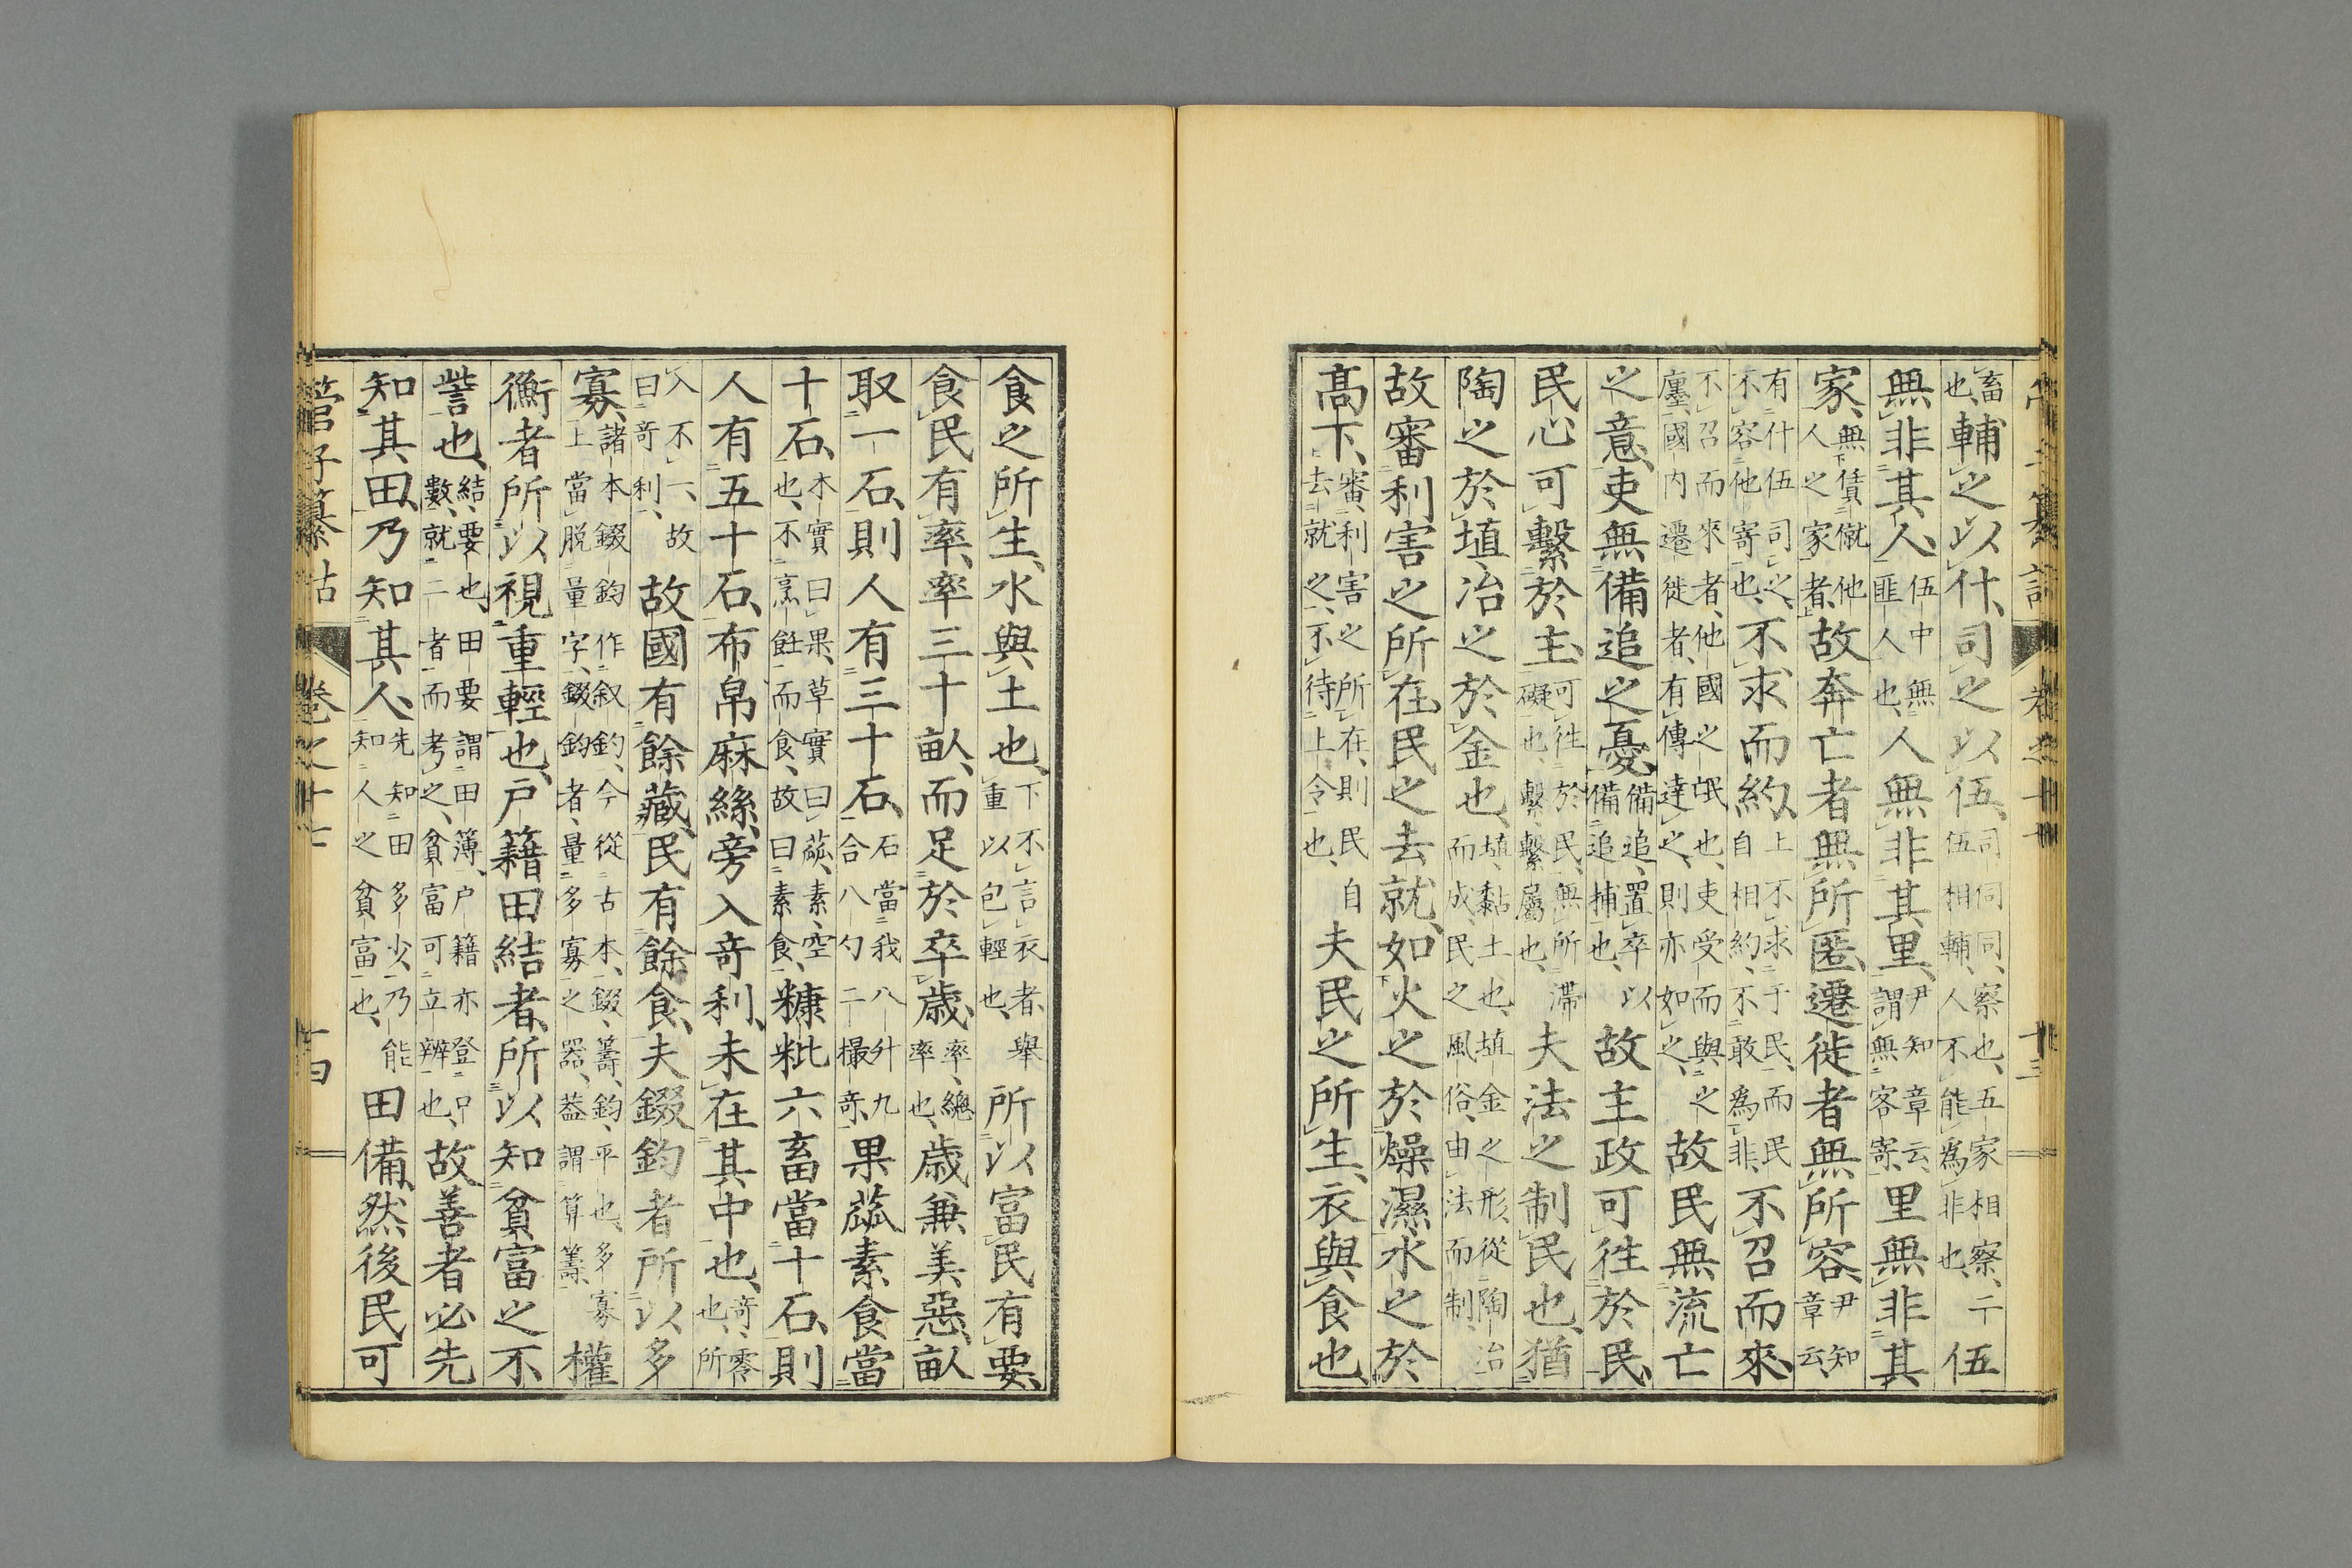 管子纂詁 卷之十七 十三
畜也、輔之以什、司之以伍、司伺同、察也、五家相察、二伍相輔、人不能為非也、伍
無非其人、伍中無匪人也、人無非其里、尹知章云、謂無客寄、里無非其
家、無賃僦他人之家者、故奔亡者無所匿、遷徙者無所容、尹知章云、
有什伍司之、不容他寄也、不求而約、上不求于民、而民自相約、不敢為非、不召而來、
不召而來者、他國之氓也、吏受而與之廛、國內遷徙者、有傳達之、則亦如之、故民無流亡
之意、吏無備追之憂、備追、置卒以備追捕也、故主政可往於民、
民心可繫於主、可往於民、無所滯礙也、繫、繫屬也、夫法之制民也、猶
陶之於埴、冶之於金也、埴、黏土也、埴金之形、從陶冶而成、民之風俗、由法而制、
故審利害之所在、民之去就、如火之於燥濕、水之於
高下、審利害之所在、則民自去就之、不待上令也、夫民之所生、衣與食也、
食之所生、水與土也、下不言衣者、舉重以包輕也、所以富民有要、
食民有率、率三十畝、而足於卒歲、率、緫率也、歲兼美惡、畝
取一石、則人有三十石、石當我八升九合八勺二撮奇、果蓏素食當
十石、木實曰果、草實曰蓏、素、空也、不烹飪而食、故曰素食、糠粃六畜當十石、則
人有五十石、布帛麻絲、旁入奇利、未在其中也、奇、零也、所
入不一、故曰奇利、故國有餘藏、民有餘食、夫錣鈞者所以多
寡、諸本錣鈞作叙釣、今從古本、錣、籌、鈞、平也、多寡上當脫量字、錣鈞者、量多寡之器、蓋謂算籌、權
衡者所以視重輕也、戶籍田結者、所以知貧富之不
訾也、結、要也、田要謂田簿、戶籍亦登口數、就二者而考之、貧富可立辨也、故善者必先
知其田、乃知其人、先知田多少、乃能知人之貧富也、田備、然後民可
管子纂詁 卷之十七 十四